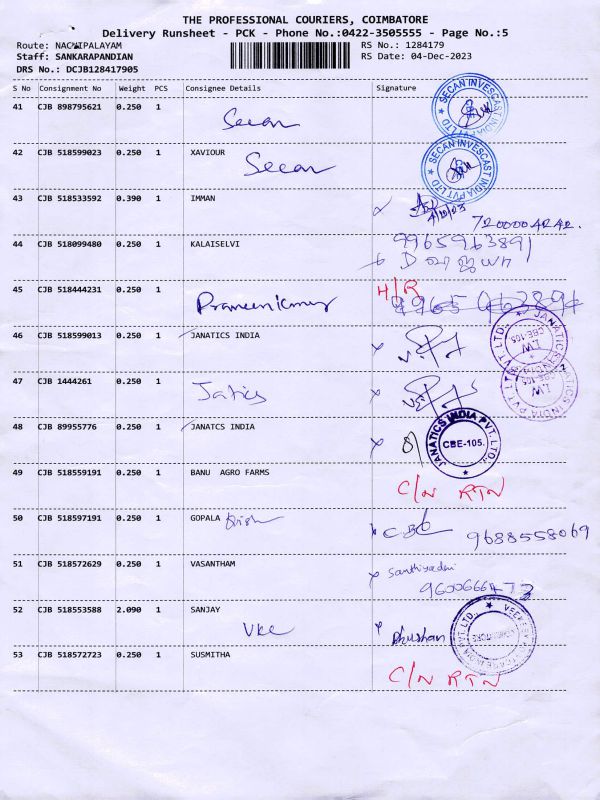 THE PROFESSIONAL COURIERS, COIMBATORE
Delivery Runsheet - PCK - Phone No.:0422-3505555 - Page No.:5
Route: NACHIPALAYAM RS No.: 1284179
Staff: SANKARAPANDIAN RS Date: 04-Dec-2023
DRS No.: DCJB128417905
S No Consignment No Weight PCS Consignee Details Signature
41 CJB 898795621 0.250 1
Secan
SECAN INVESCAST INDIA PVT LTD
42 CJB 518599023 0.250 1 XAVIOUR
Secan
SECAN INVESCAST INDIA PVT LTD
43 CJB 518533592 0.390 1 IMMAN
7200004242.
44 CJB 518099480 0.250 1 KALAISELVI
9965963891
45 CJB 518444231 0.250 1 H/R
Prameenkumar
46 CJB 518599013 0.250 1 JANATICS INDIA
JANATICS INDIA PVT. LTD.
CBE-105
47 CJB 1444261 0.250 1
Jatics
48 CJB 89955776 0.250 1 JANATCS INDIA
JANATICS INDIA PVT. LTD.
CBE-105.
49 CJB 518559191 0.250 1 BANU AGRO FARMS
C/N RTN
50 CJB 518597191 0.250 1 GOPALA Krish
9688558069
51 CJB 518572629 0.250 1 VASANTHAM
Santhiyadevi
9600666473
52 CJB 518553588 2.090 1 SANJAY
Vkc
Bhushan
53 CJB 518572723 0.250 1 SUSMITHA
C/N RTN